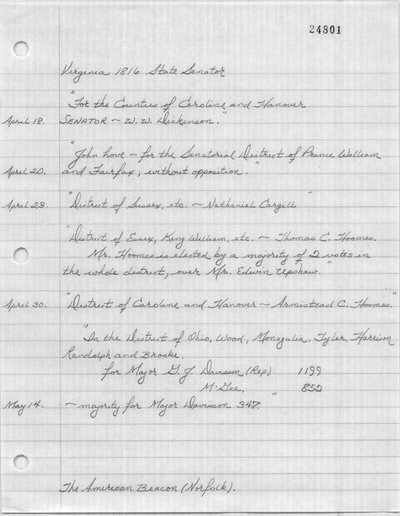 24801
Virginia 1816 State Senator
"For the Counties of Caroline and Hanover
April 18. SENATOR - W. W. Dickinson."
"John Love - for the Senatorial District of Prince William
April 20. and Fairfax, without opposition."
April 23 "District of Sussex, etc. - Nathaniel Cargill"
"District of Essex, King William, etc. - Thomas C. Hoomes.
Mr. Hoomes is elected by a majority of 2 votes in
the whole district, over Mr. Edwin Upshaw."
April 30. "District of Caroline and Hanover - Armistead C. Hoomes."
"In the District of Ohio, Wood, Monogalia, Tyler, Harrison
Randolph and Brooke.
for Major G. J. Davisson (Rep) 1199
McGee. 852
May 14. - majority for Major Davisson 347."
The American Beacon (Norfolk).